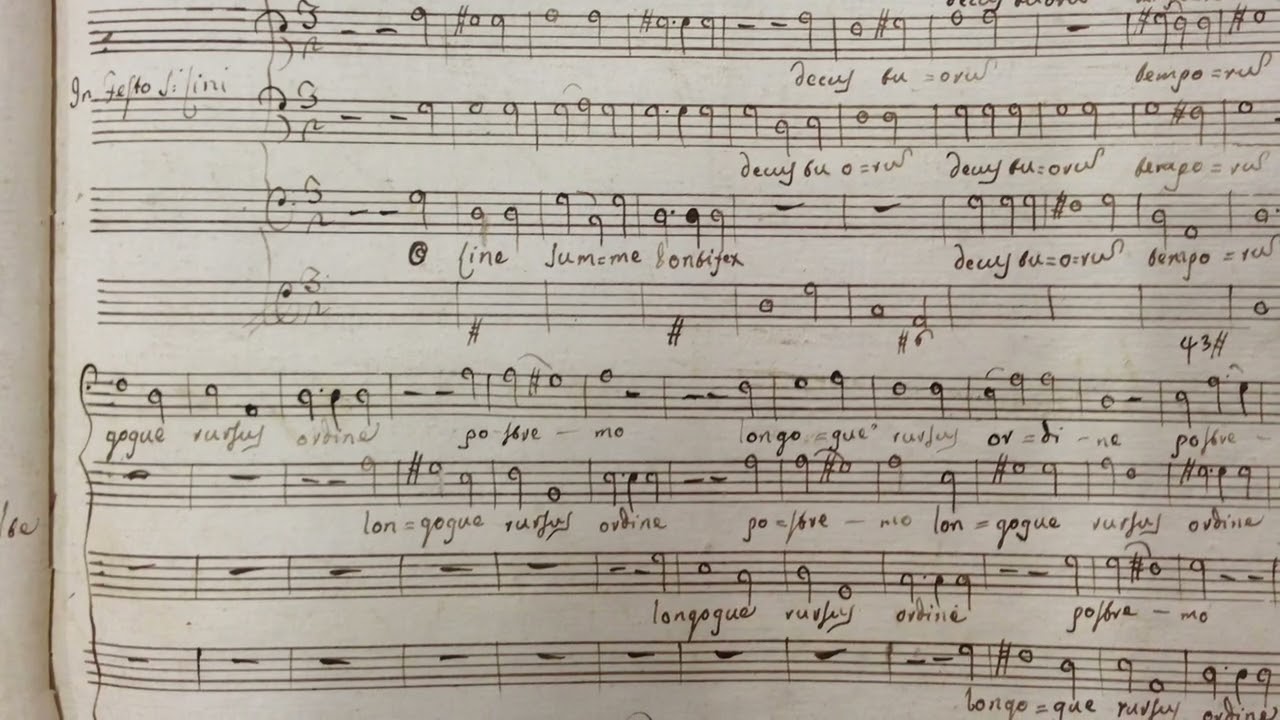 decus tu = orus tempo = rus
In festo S: Lini
decus tu o = rus decus tu = orus tempo = rus
O Line sum = me Pontifex decus tu = o = rus tempo = rus
# # #6 43#
gogue rursus ordine po - stre - mo longo = que rursus or = di - ne postre -
lon = gogue rursus ordine po = stre - mo lon = gogue rursus ordine
longogue rursus ordine postre - mo
longo = gue rursus ordine